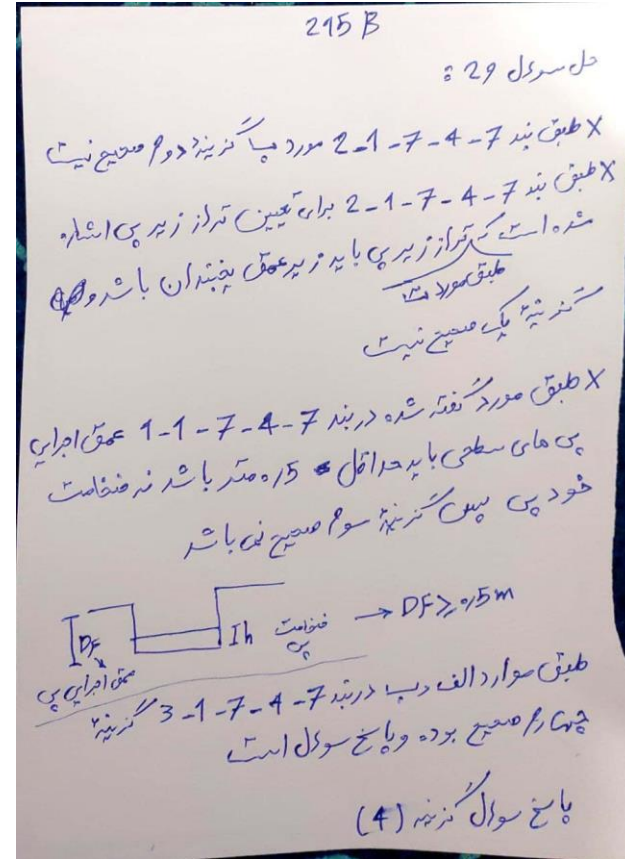 295 B
حل سوال 29 :
× طبق بند 7-4-7-1-2 مورد ب گزینهٔ دوم صحیح نیست
× طبق بند 7-4-7-1-2 برای تعیین تراز زیر پی اشاره
شده است که تراز زیر پی باید زیر عمق یخبندان باشد و
طبق مورد ت
گزینهٔ یک صحیح نیست
× طبق مورد گفته شده در بند 7-4-7-1-1 عمق اجرایی
پی های سطحی باید حداقل 0/5 متر باشد نه ضخامت
خود پی پس گزینهٔ سوم صحیح نمی باشد
DF h ضخامت پی → DF ≥ 0/5 m
عمق اجرایی پی
طبق موارد الف و ب در بند 7-4-7-1-3 گزینهٔ
چهارم صحیح بوده و پاسخ سوال است
پاسخ سوال گزینه (4)